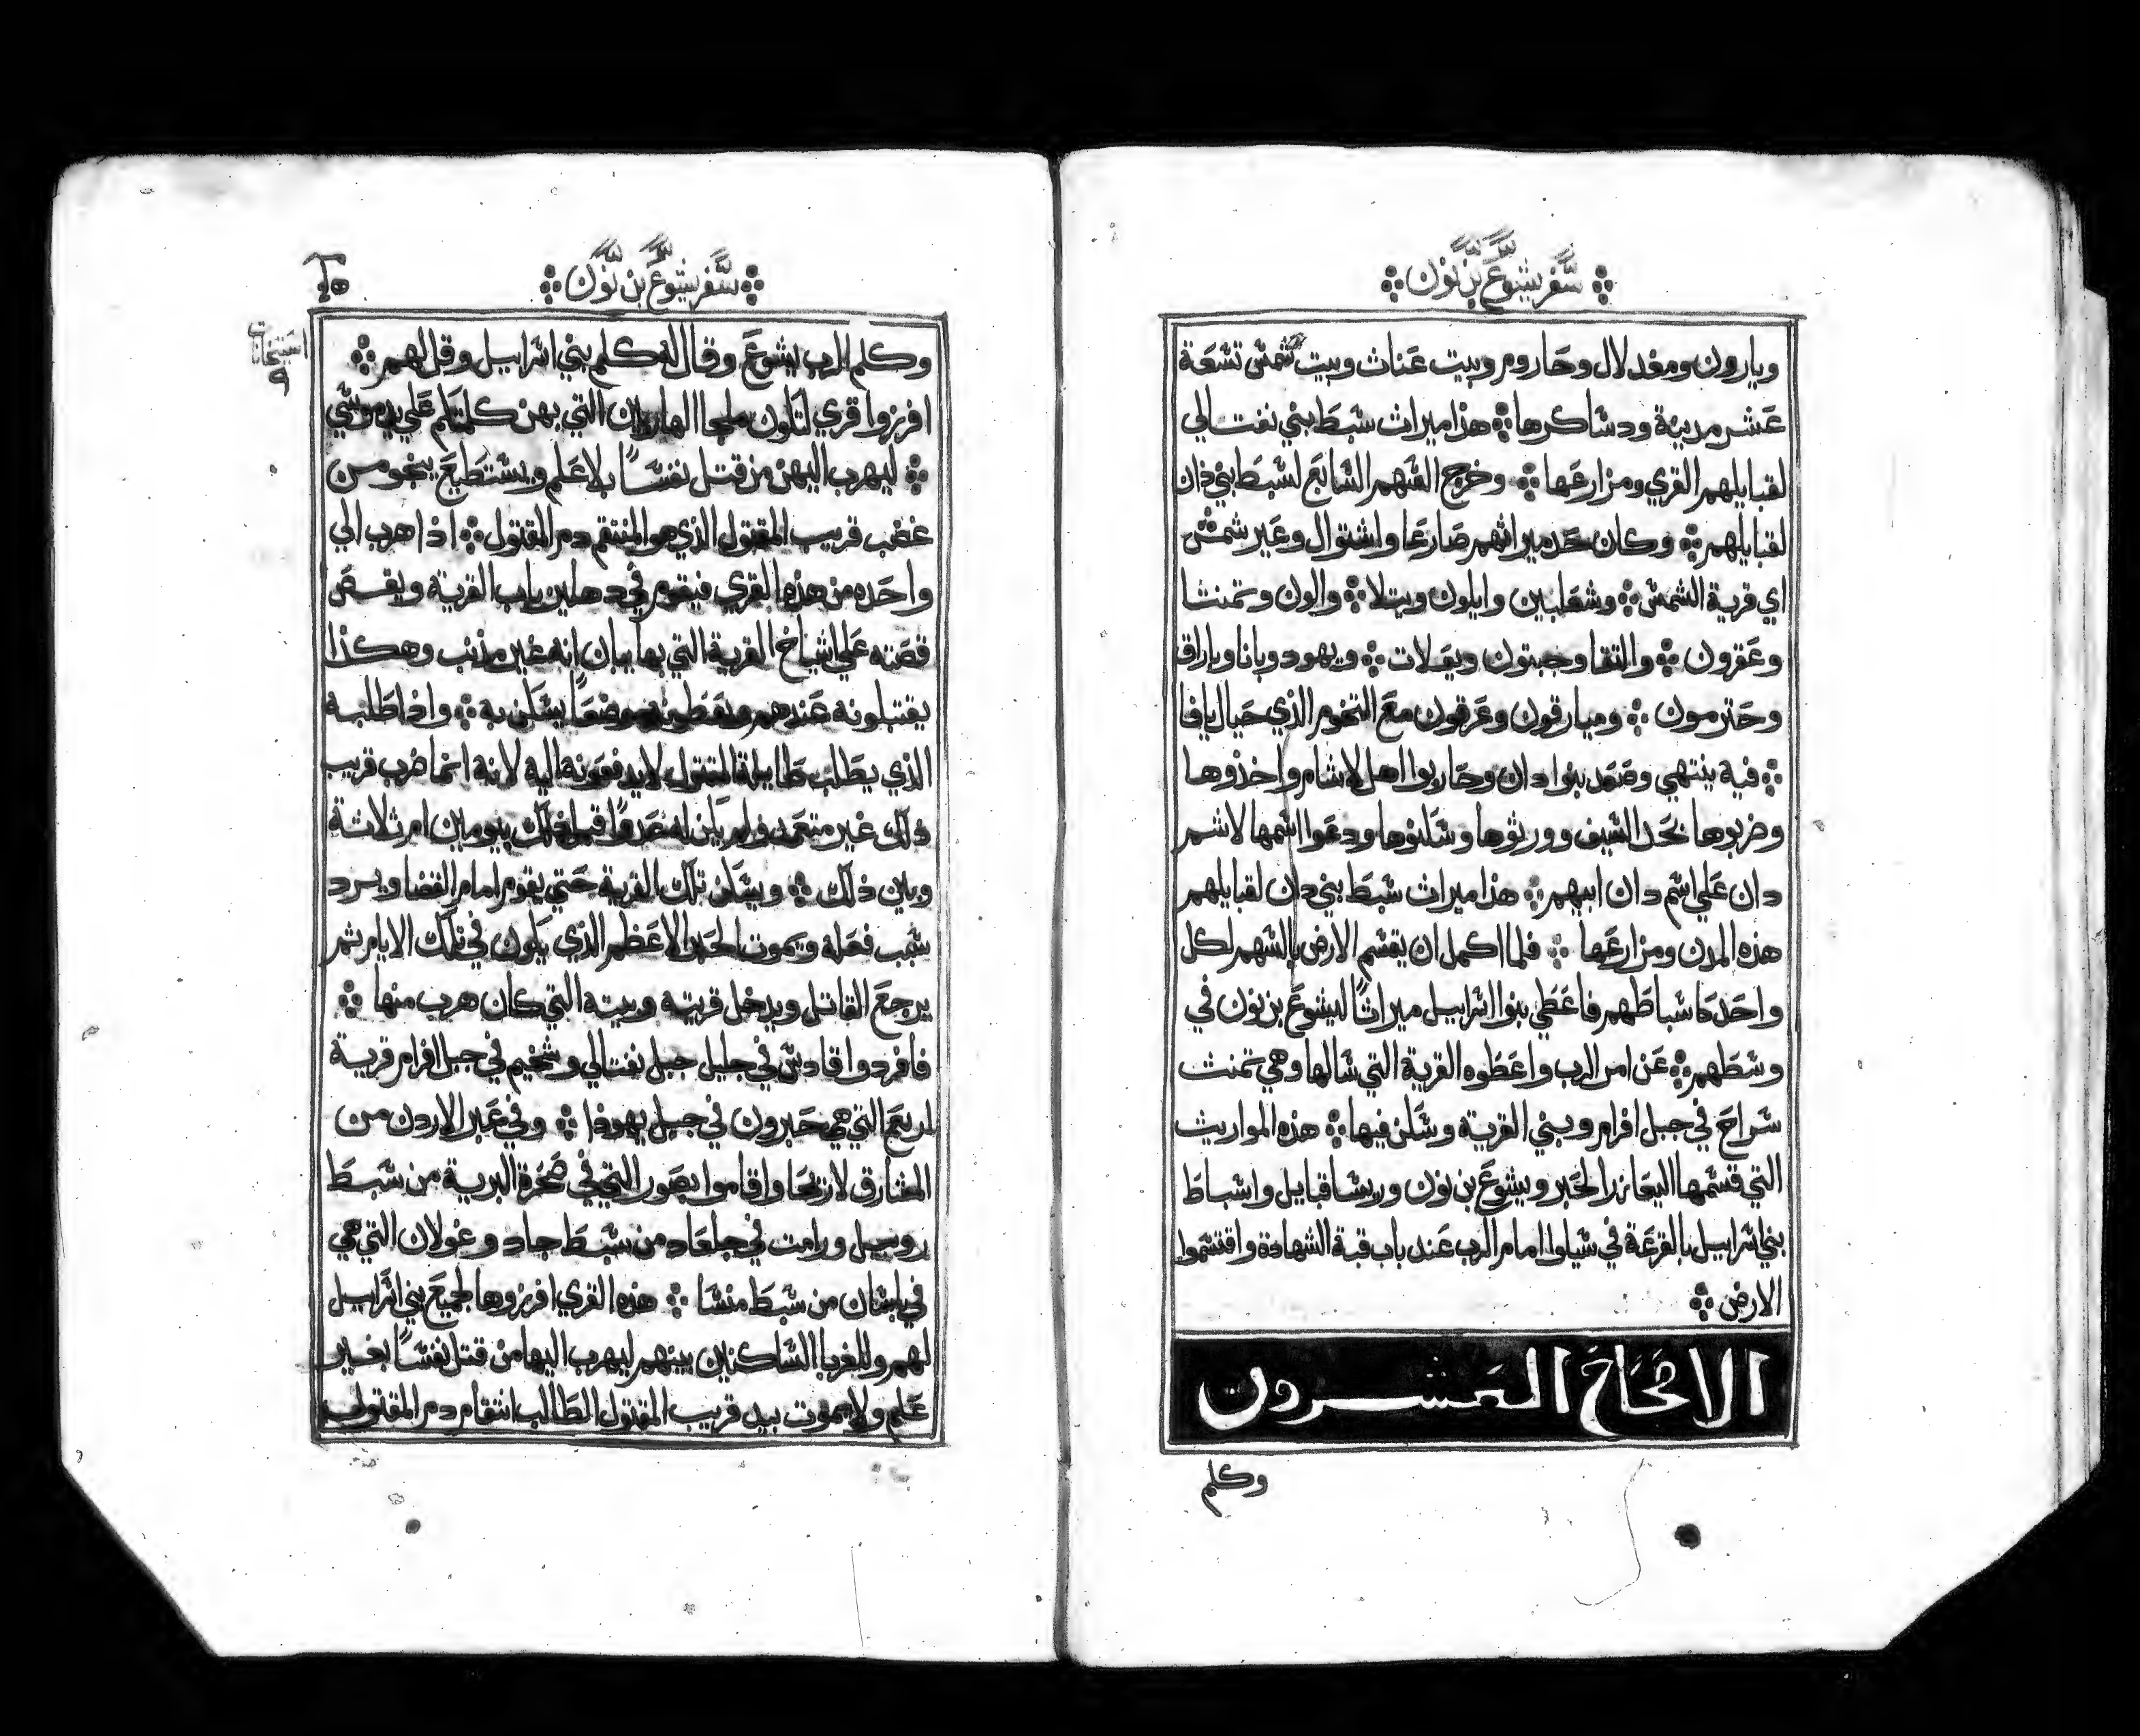 سفر يشوع بن نون
ويارون ومغدلال وحاروم وبيت عناث وبيت شمش تسعة
عشر مدينة ودساكرها هذا ميراث سبط بني نفتالي
لقبايلهم القري ومزارعها وخرج السهم السابع لسبط بني دان
لقبايلهم وكان حد ميراثهم صارعا واشتوال وعير شمش
اي قرية الشمس وشعلبين وايلون ويتلا والون وتمنثا
وعقرون والتقا وجبتون وبعلات ويهود وبانا وباراق
وحترمون وميارقون وعرقون مع التخوم الذي حيال يافا
فيه ينتهي وصعد بنوا دان وحاربوا اهل لاشام واخذوها
وضربوها بحد السيف وورثوها وسكنوها ودعوا اسمها لاشم
دان علي اسم دان ابيهم هذا ميراث سبط بني دان لقبايلهم
هذه المدن ومزارعها فلما اكمل ان يقسم الارض بالسهم لكل
واحد كاسباطهم فاعطي بنوا اسراييل ميراثًا ليشوع بن نون في
وسطهم عن امر الرب واعطوه القرية التي سالها وهي تمنث
سراح في جبل افرام وبني القرية وسكن فيها هذه المواريث
التي قسمها اليعازر الحبر ويشوع بن نون وريسا قبايل واسباط
بني اسراييل بالقرعة في شيلوا امام الرب عند باب قبة الشهادة واقتسموا
الارض
الاصحاح العشرون
وكلم
سفر يشوع بن نون
وكلم الرب يشوع وقال له كلم بني اسراييل وقل لهم
افرزوا قري لتكون ملجا الهاربين التي بهن كلمتكم علي يد موسي
ليهرب اليهن من قتل نفسًا بلا علم ويستطيع ينجو من
غضب قريب المقتول الذي هو المنتقم دم المقتول اذا هرب الي
واحده من هذه القري فيقوم في دهليز باب القرية ويقص
قصته علي اشياخ القرية التي بها بيان انه غير مذنب وهكذا
يقتبلونه عندهم ويعطونه موضعًا يسكن به واذا طلبه
الذي يطلب طايلة المقتول لا يدفعونه اليه لانه انما ضرب قريب
ذلك غير متعمد ولم يكن له عدوًا قبل ذلك بيومين ام ثلاثة
وبين ذلك ويسكن تلك القرية حتي يقوم امام القضا ويرد
سبب فعله ويموت الحبر الاعظم الذي يكون في تلك الايام ثم
يرجع القاتل ويدخل قريته وبيته التي كان هرب منها
فافردوا قادش في جليل جبل نفتالي وشخيم في جبل افرام قرية
لربع التي هي حبرون في جبل يهوذا وفي عبر الاردن من
المشارق لاريحا واقاموا بصور التي في صحرة البرية من سبط
روبيل ورامت في جلعاد من سبط جاد وغولان التي هي
في باسان من سبط منشا هذه القري افرزوها لجميع بني اسراييل
لهم وللغربا الساكنين بينهم ليهرب اليها من قتل نفسًا بغير
علم ولا يموت بيد قريب المقتول الطالب انتقام دم المقتول